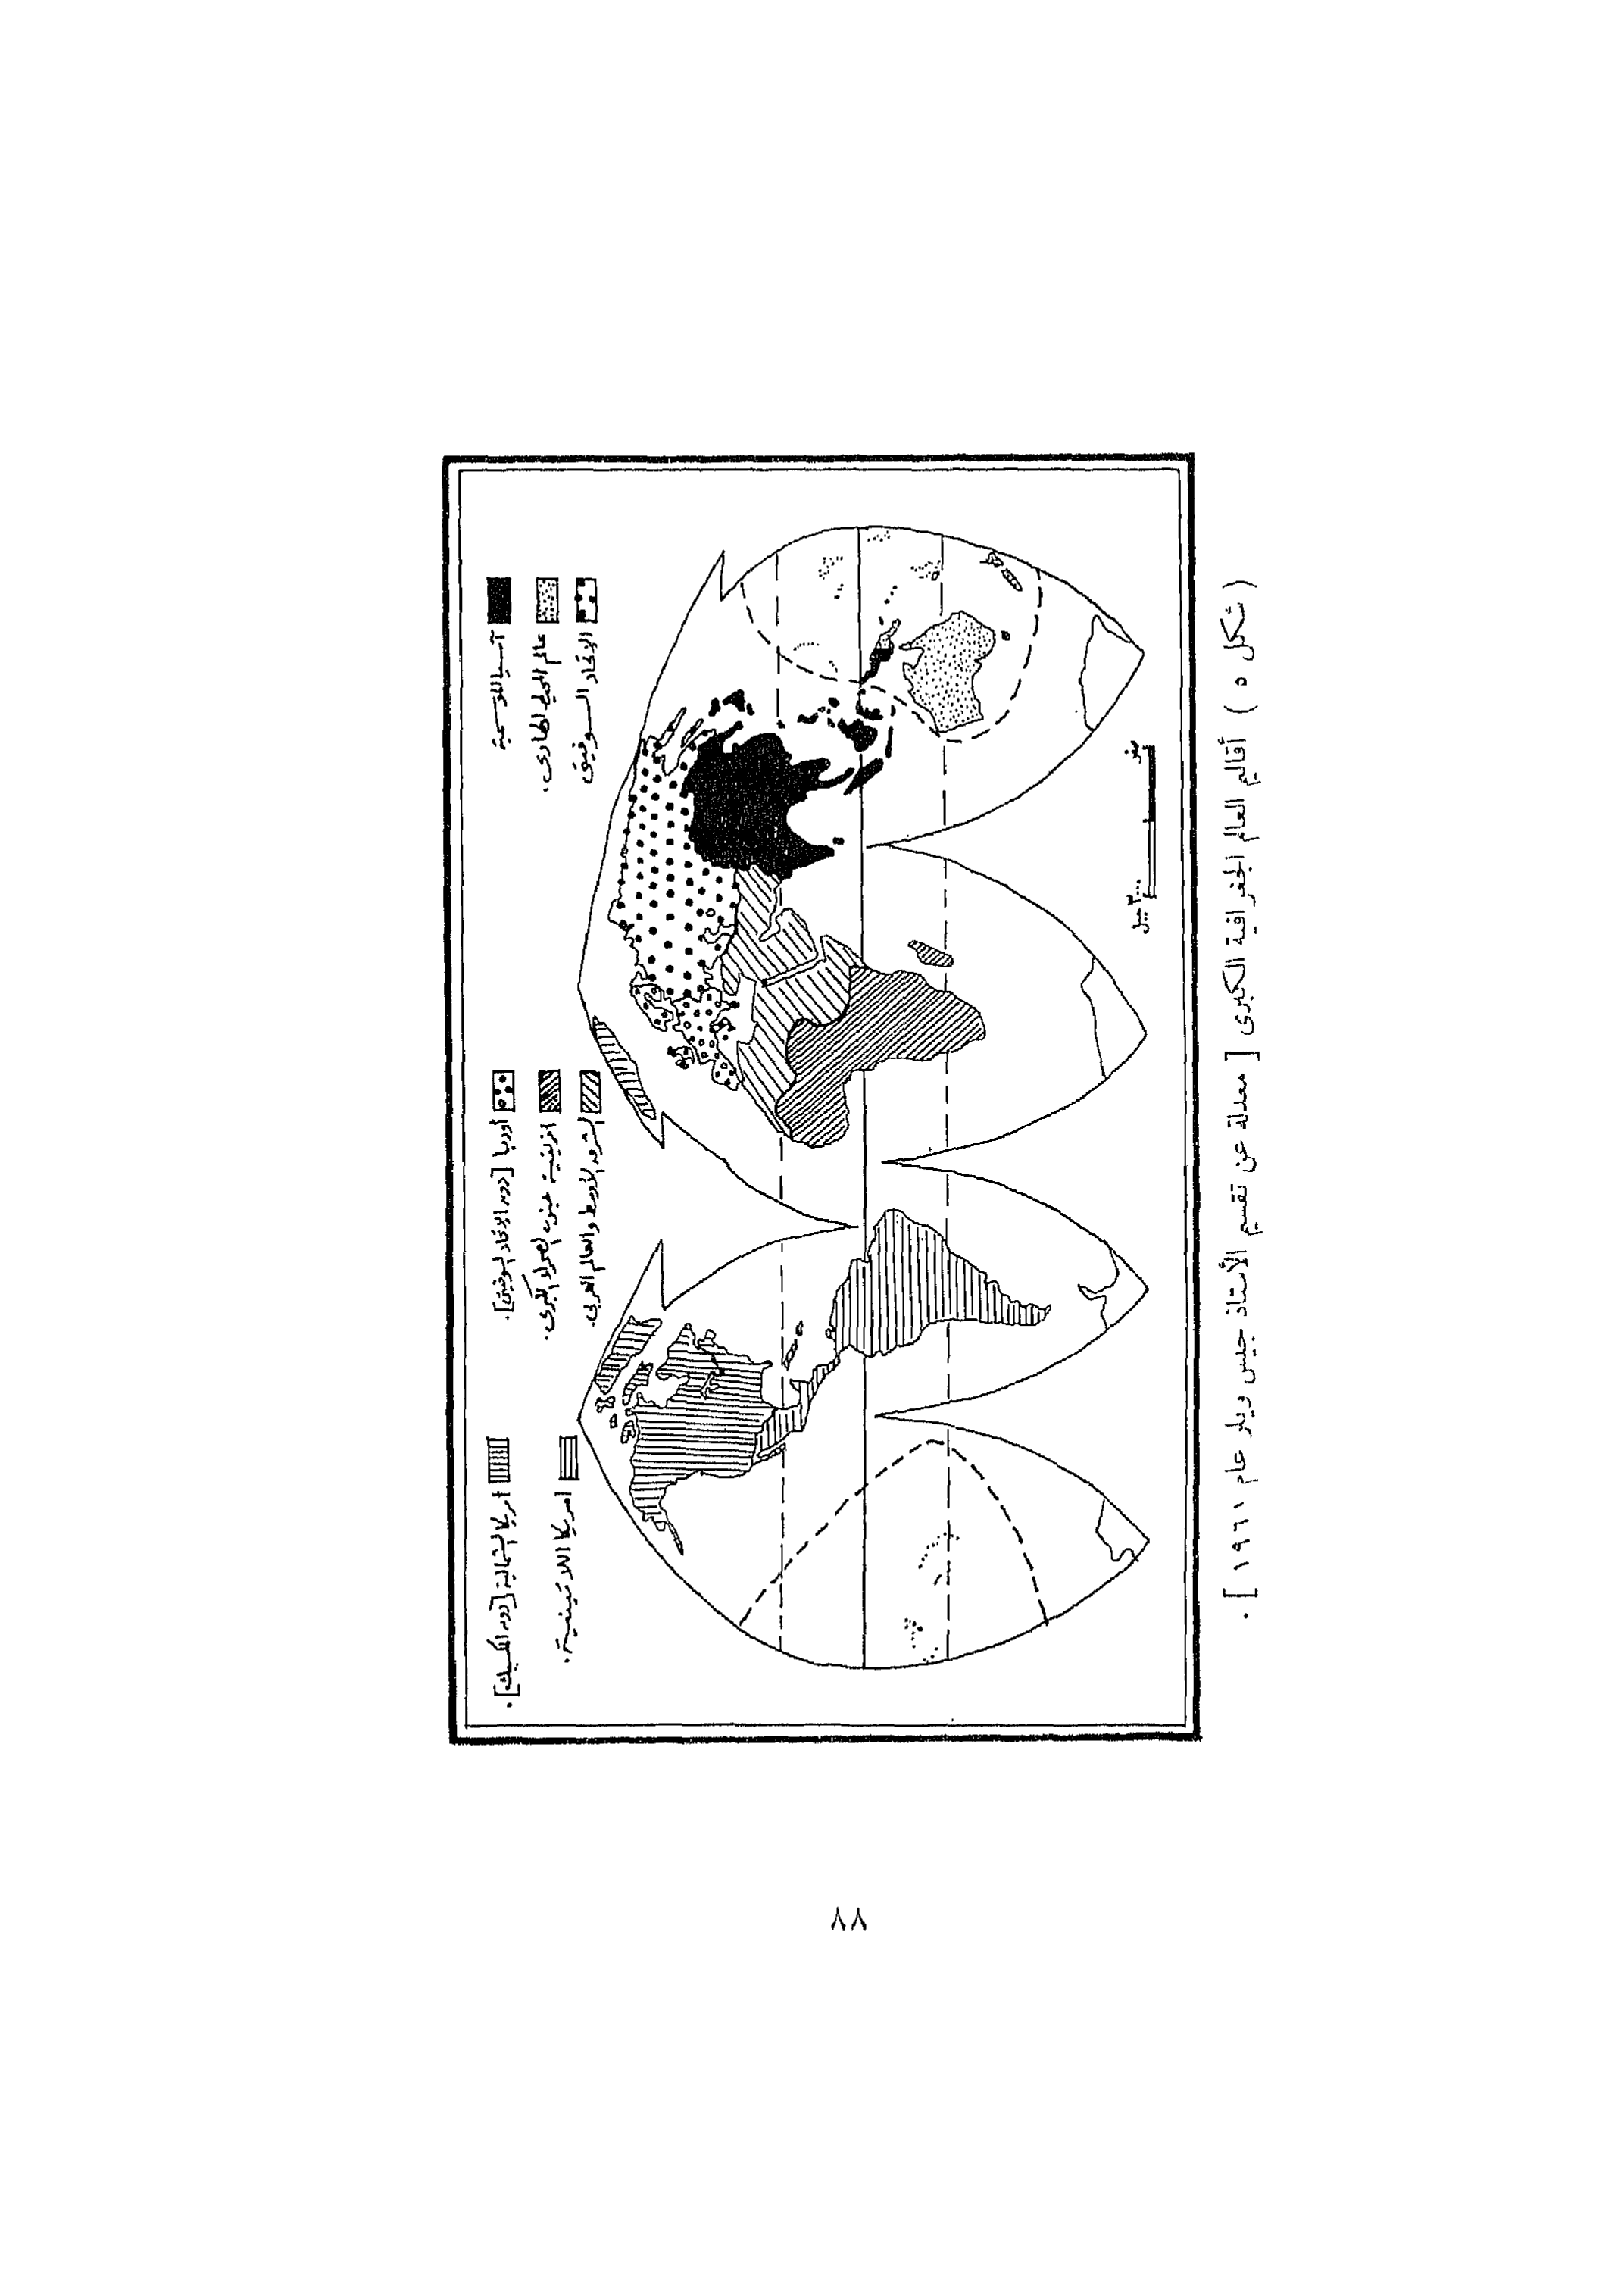 آسيا الموسمية
عالم المحيط الهادى.
الاتحاد السوفيتى
أوربا [دون الاتحاد السوفيتى].
افريقية جنوب الصحراء الكبرى.
الشرق الأوسط والعالم العربى.
امريكا الشمالية [دون المكسيك].
امريكا اللاتينية.
صفر
٣٠٠٠ ميل
( شكل ٥ ) أقاليم العالم الجغرافية الكبرى [ معدلة عن تقسيم الأستاذ جيمس ويلر عام ١٩٦١ ] .
٨٨